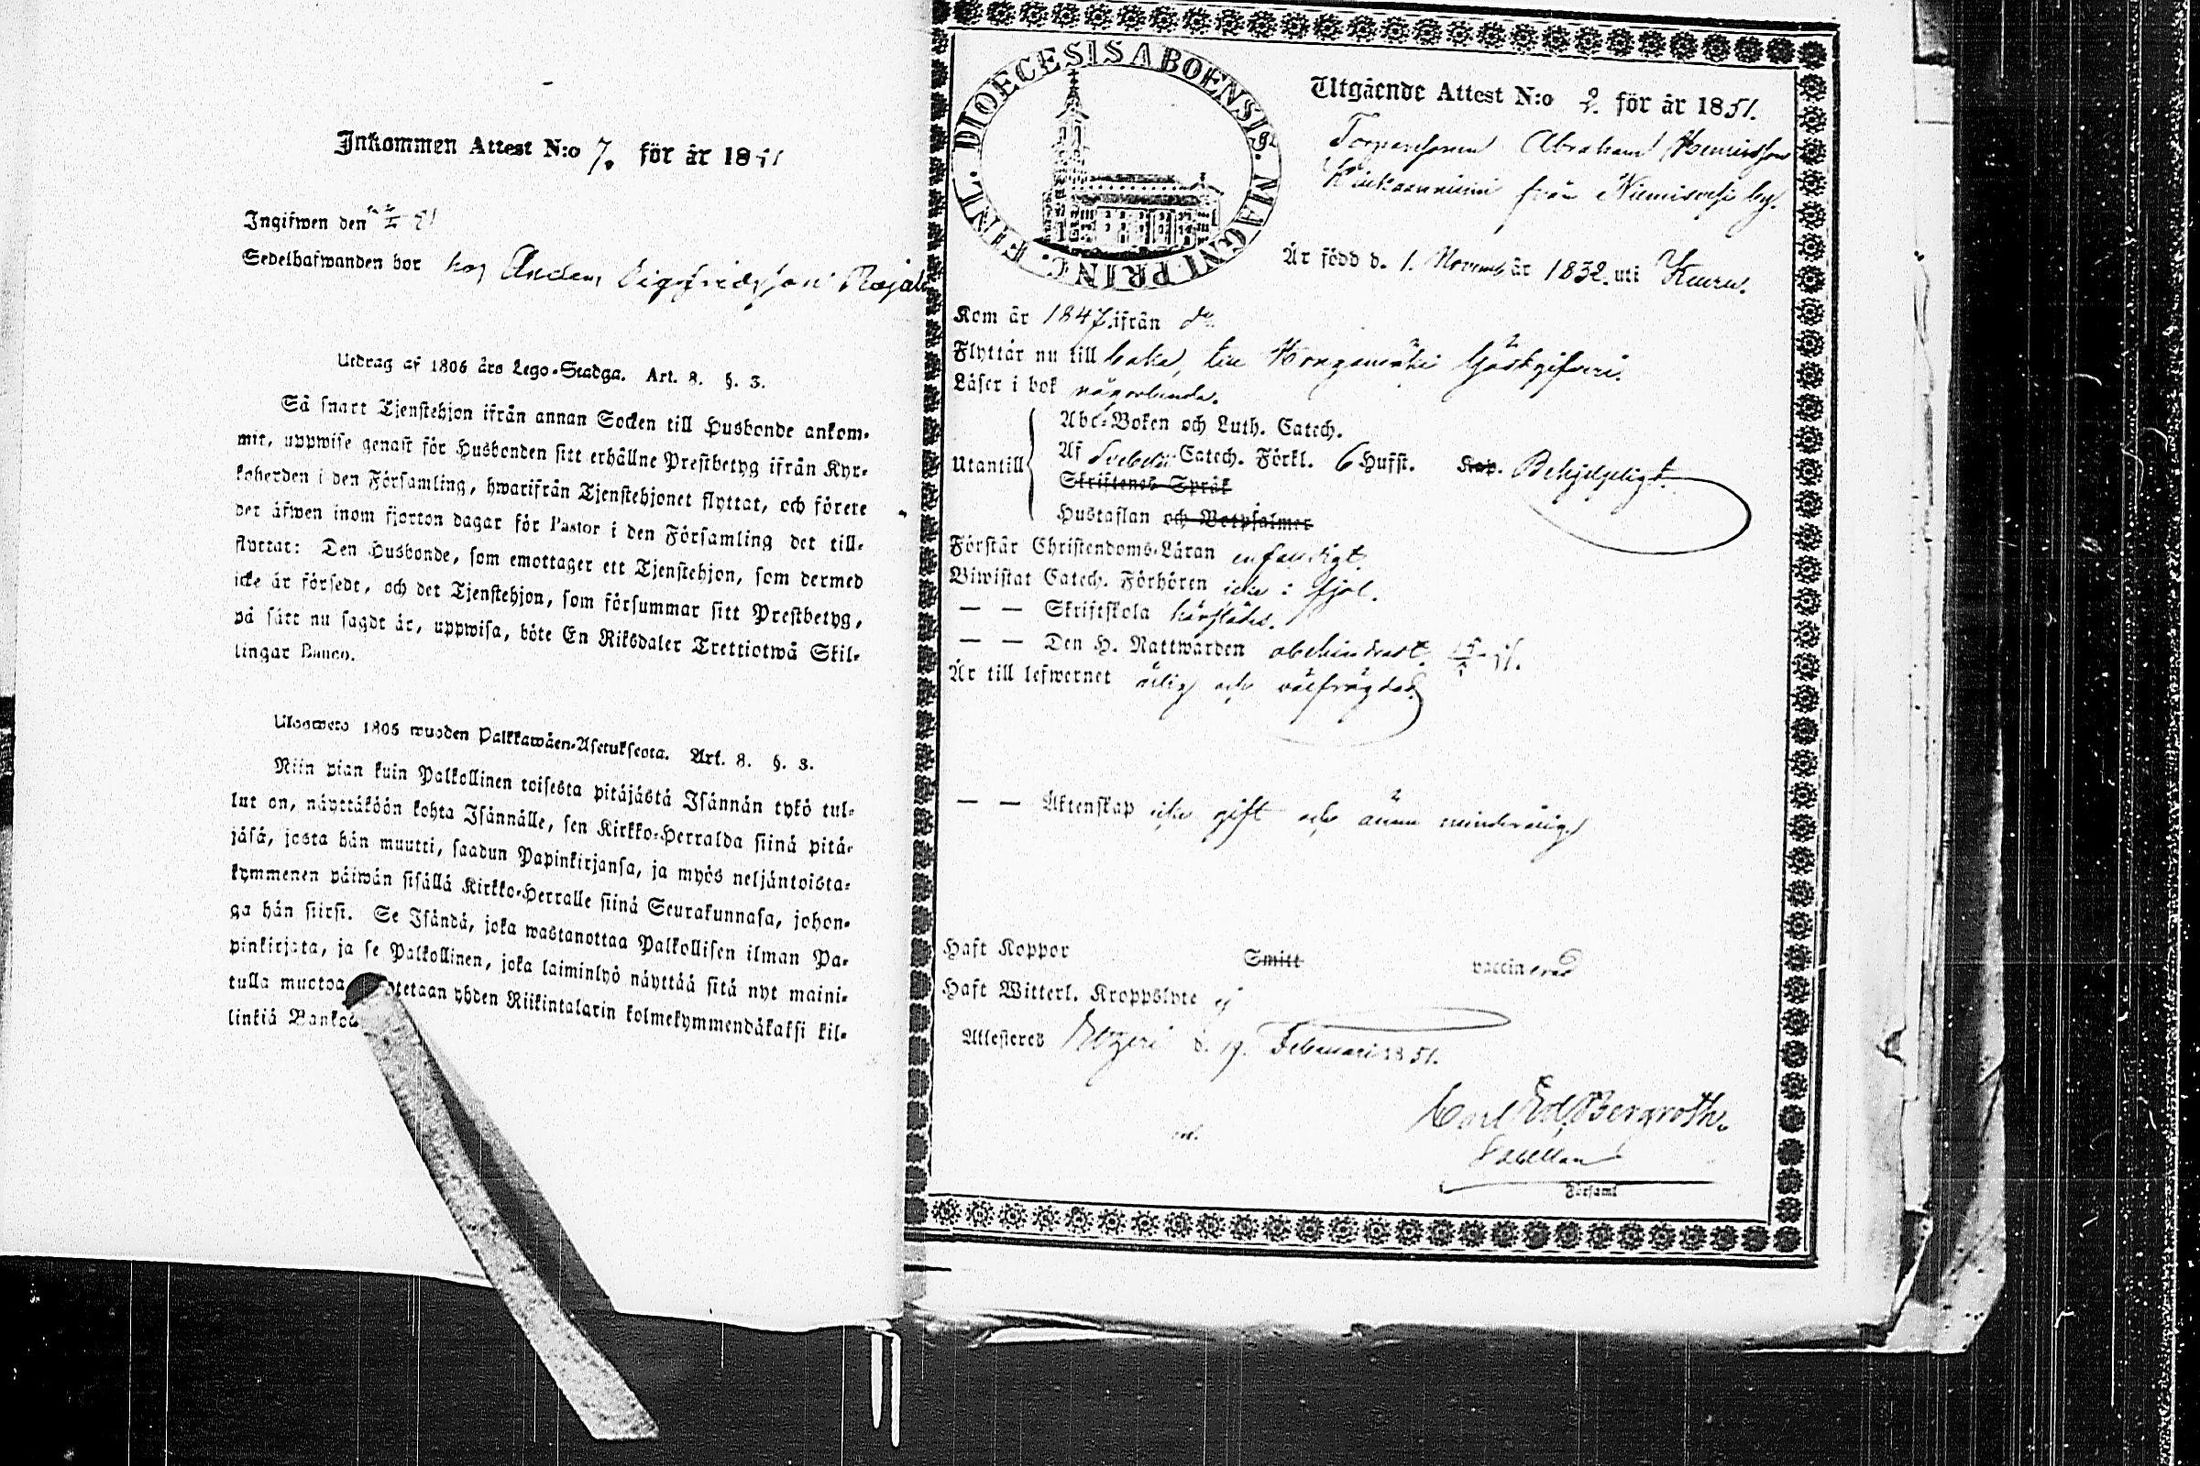 Inkommen Attest N:o 7. för år 1851
Ingifwen den
Sedelhafwanden bor hos Anders Sigfridsson
Utdrag af 1805 års Lego-Stadga. Art. 8. §. 3.
Så snart Tjenstehjon ifrån annan Socken till Husbonde ankom-
mit, uppwise genast för Husbonden sitt erhållne Prestbetyg ifrån Kyr-
koherden i den Församling, hwarifrån Tjenstehjonet flyttat, och förete
det äfwen inom fjorton dagar för Pastor i den Församling det till-
flyttat: Den Husbonde, som emottager ett Tjenstehjon, som dermed
icke är försedt, och det Tjenstehjon, som försummar sitt Prestbetyg,
på sätt nu sagdt är, uppwisa, böte En Riksdaler Trettiotwå Skil-
lingar Banco.
Ulosweto 1805 wuoden Palkkawäen-Asetuksesta. Art. 8. §. 3.
Niin pian kuin Palkollinen toisesta pitäjästä Isännän tykö tul-
lut on, näyttäköön kohta Isännälle, sen Kirkko-Herralda siinä pitä-
jäsä, josta hän muutti, saadun Papinkirjansa, ja myös neljäntoista-
kymmenen päiwän sisällä Kirkko-Herralle siinä Seurakunnasa, johon-
ga hän siirsi. Se Isändä, joka wastanottaa Palkollisen ilman Pa-
pinkirjata, ja se Palkollinen, joka laiminlyö näyttää sitä nyt maini-
tulla muotoa yhden Riikintalarin kolmekymmendäkaksi kil-
linkiä
DIOECESIS ABOENSIS. MAGNI PRINC. FINL.
Utgående Attest N:o 2. för år 1851.
Torparesonen Abraham Henriksson
från Niemisvesi by.
Är född d. 1. Novemb år 1832. uti Keuru.
Kom år 1847. ifrån do
Flyttar nu till baka, till Gästgifveri.
Läser i bok någorlunda.
Utantill
Abc-Boken och Luth. Catech.
Af Svebelii Catech. Förkl. 6 Hufst. Kap. Behjelpeligt.
Skriftenes Språk
Hustaflan och Botpsalmer
Förstår Christendoms-Läran enfaldigt.
Biwistat Catech. Förhören icke i fjol.
— — Skriftskola härstädes.
— — Den H. Nattwarden obehindradt.
Är till lefwernet ärlig och välfrägdad.
— — Äktenskap icke gift och ännu minderårig
Haft Koppor Smitt vaccinerad
Haft Witterl. Kroppslyte ej
Attesteres Etzeri d. 19. Februari 1851.
Carl Ed. Bergroth.
Capellan
Församl